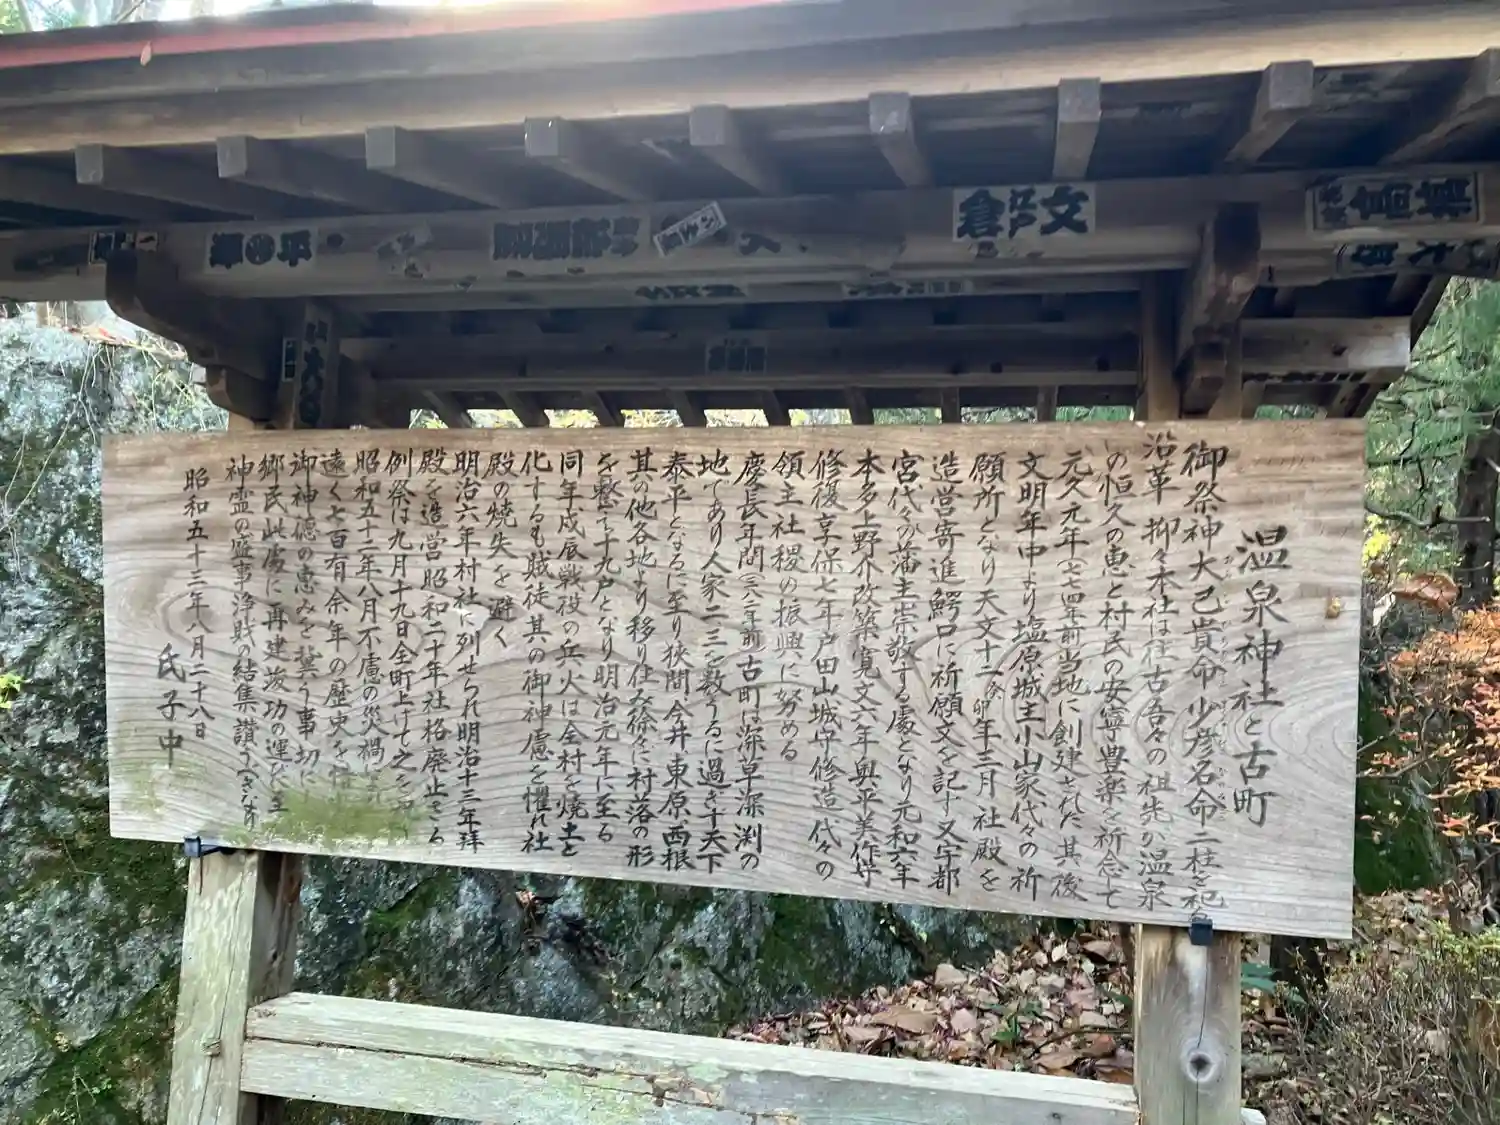 温泉神社と古町
御祭神大己貴命少彦名命二柱を祀る
沿革 抑々本社は往古吾々の祖先が温泉
の恒久の恵と村民の安寧豊楽を祈念して
元久元年(七七四年前)当地に創建された其後
文明年中より塩原城主小山家代々の祈
願所となり天文十二癸卯年三月社殿を
造営寄進鰐口に祈願文を記す又宇都
宮代々の藩主崇敬する處となり元和六年
本多上野介改築寛文六年奥平美作守
修復享保七年戸田山城守修造代々の
領主社稷の振興に努める
慶長年間(三八二年前)古町は深草深渕の
地であり人家二三を数うるに過ぎず天下
泰平となるに至り狭間今井東原西根
其の他各地より移り住み徐々に村落の形
を整て十九戸となり明治元年に至る
同年戊辰戦役の兵火は全村を焼土と
化するも賊徒其の御神慮を懼れ社
殿の焼失を避く
明治六年村社に列せられ明治十三年拝
殿を造営昭和二十年社格廃止さる
例祭は九月十九日全町上げて之を
昭和五十二年八月不慮の災禍
遠く七百有余年の歴史を
御神徳の恵みを冀う事切に
郷民此處に再建竣功の運び
神霊の靈事浄財の結集讃うべきなり
昭和五十三年八月二十八日
氏子中
文
江戸
倉
高橋
平